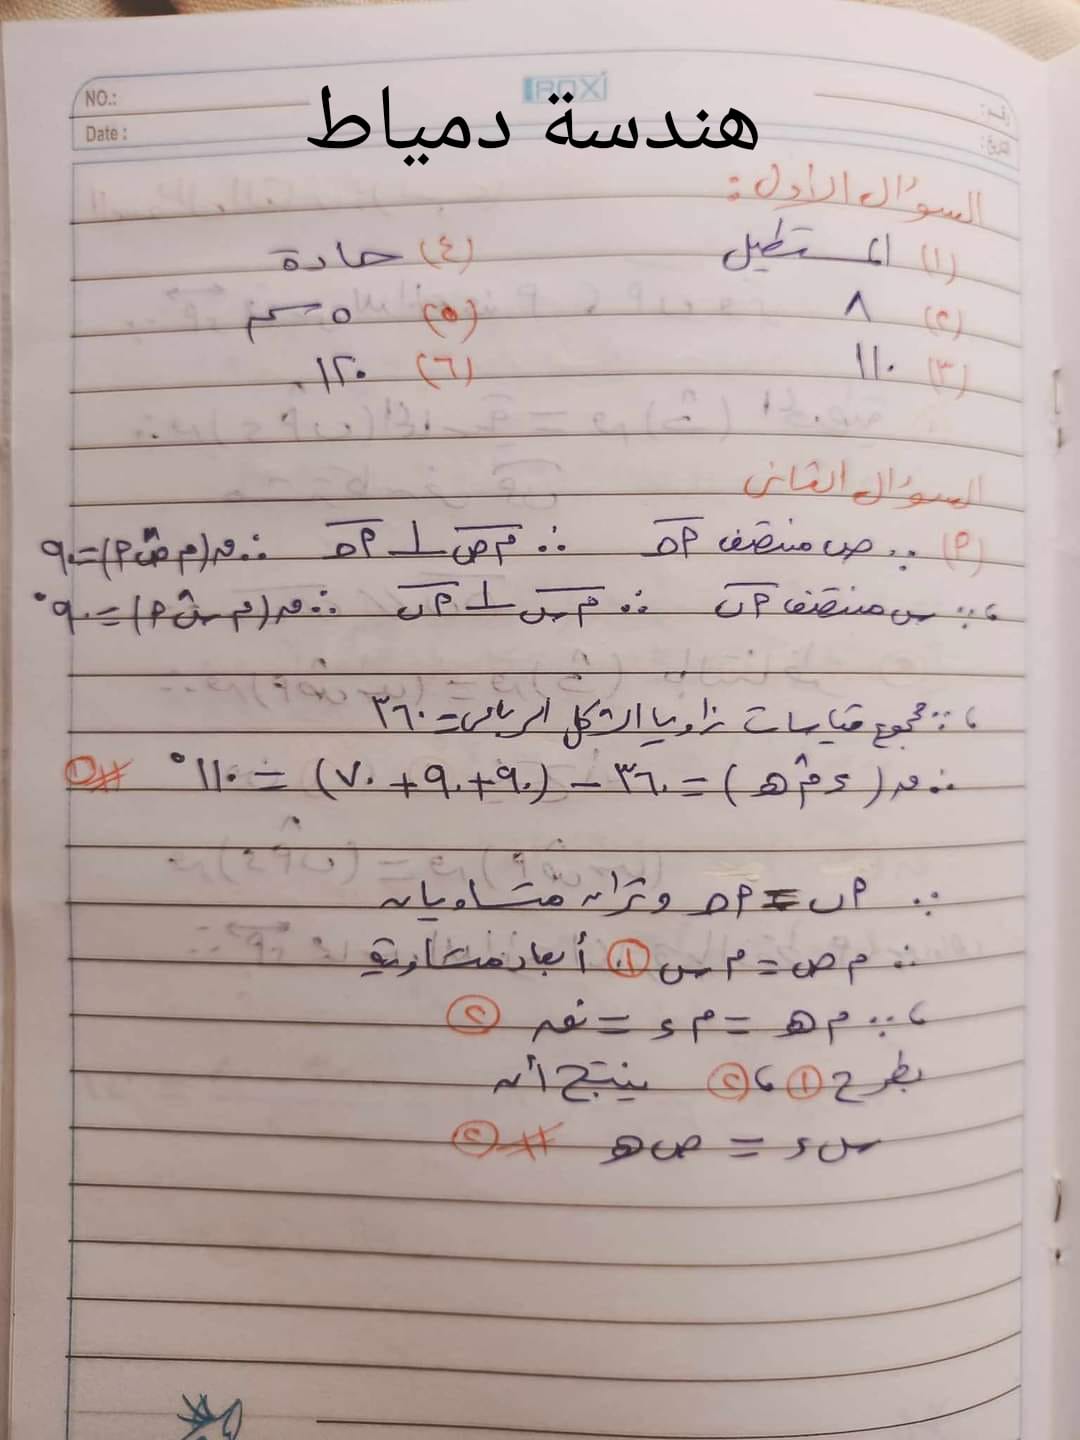 NO.:
Date :
رقم:
التاريخ:
ROXI
هندسة دمياط
السؤال الأول :
(١) المستطيل (٤) حادة
(٢) ٨ (٥) ٥ سم
(٣) ١١٠ (٦) ١٢٠
السؤال الثانى
(٩) ∵ ص منتصف أحـ ∴ م ص ⊥ أحـ ∴ ق(م ص أ) = ٩٠
، ∵ س منتصف أب ∴ م س ⊥ أب ∴ ق(م س أ) = ٩٠°
، ∵ مجموع قياسات زوايا الشكل الرباعى = ٣٦٠
∴ ق(ء م هـ) = ٣٦٠ − (٩٠ + ٩٠ + ٧٠) = ١١٠° #①
∵ أب = أحـ وتران متساويان
∴ م ص = م س ① أبعاد متساوية
، ∵ م هـ = م ء = نق ②
بطرح ① ، ② ينتج أن
س ء = ص هـ #②